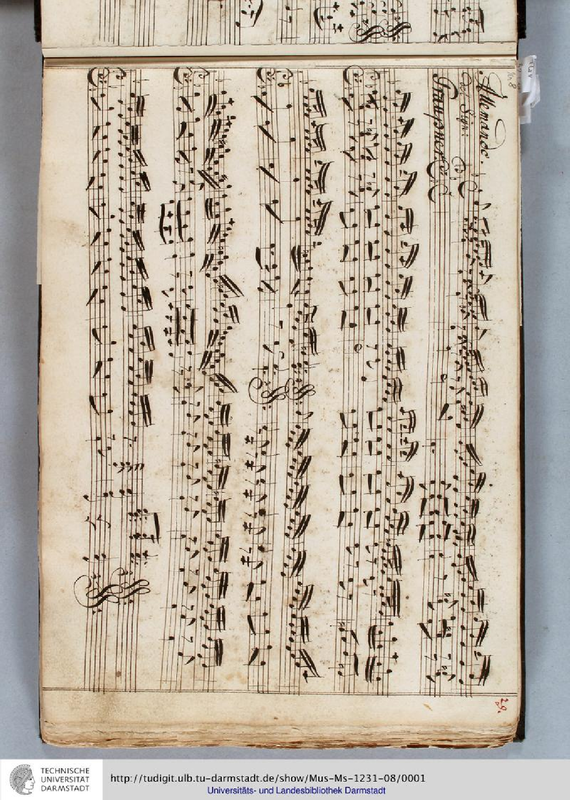 Allemande
del Sigr:
Graupner
29.
TECHNISCHE
UNIVERSITÄT
DARMSTADT
http://tudigit.ulb.tu-darmstadt.de/show/Mus-Ms-1231-08/0001
Universitäts- und Landesbibliothek Darmstadt